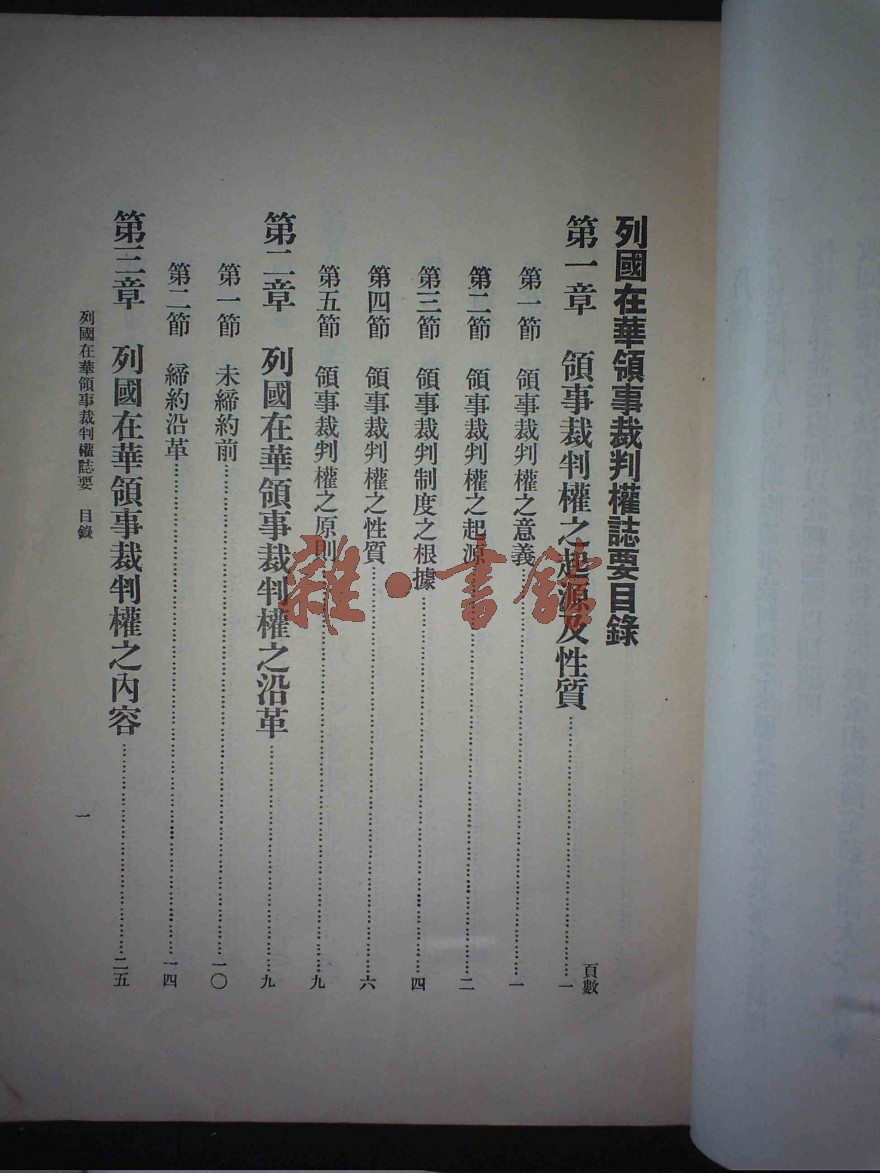 列國在華領事裁判權誌要目錄
頁數
第一章 領事裁判權之起源及性質……一
第一節 領事裁判權之意義……一
第二節 領事裁判權之起源……二
第三節 領事裁判制度之根據……四
第四節 領事裁判權之性質……六
第五節 領事裁判權之原則……九
第二章 列國在華領事裁判權之沿革……九
第一節 未締約前……一〇
第二節 締約沿革……一四
第三章 列國在華領事裁判權之內容……二五
列國在華領事裁判權誌要 目錄
一
雜·書館